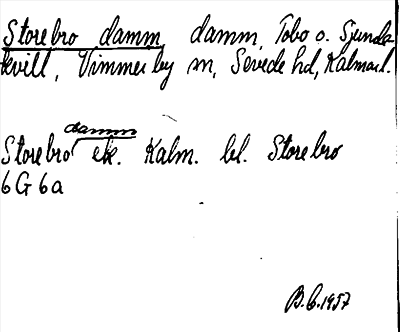 Storebro damm, damm, Tobo o. Sjunda-
kvill, Vimmerby sn, Sevede hd, Kalmar l.
damm
Storebro ek. Kalm. bl. Storebro
6G6a
B.C. 1957